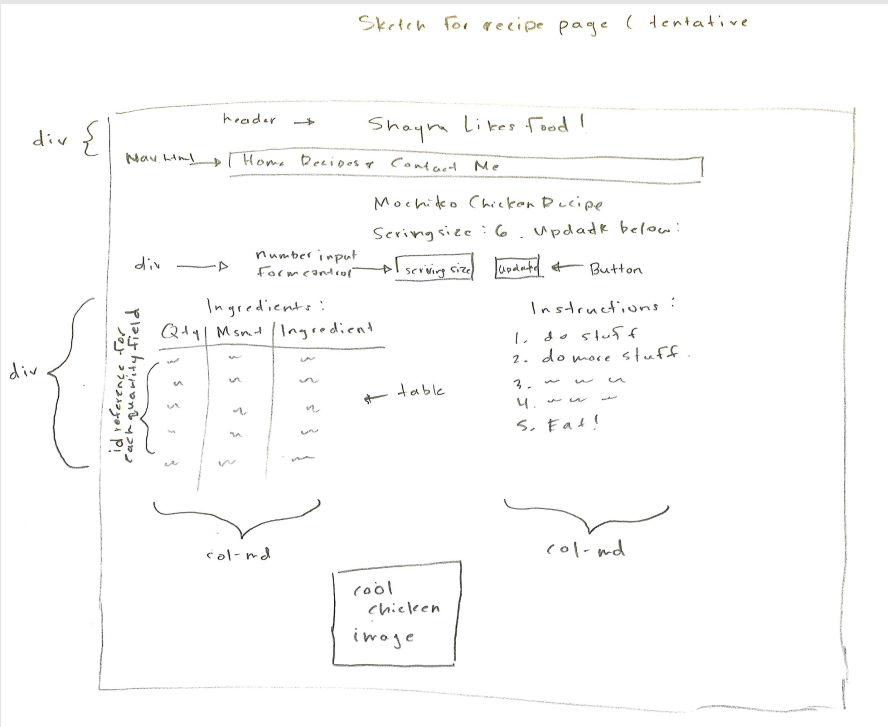 Sketch for recipe page ( tentative
div { header → Shayna Likes Food!
Nav html → Home Recipes▾ Contact Me
Mochiko Chicken Recipe
Serving size : 6 . Update below :
div → number input
form control → serving size update ← Button
div { Ingredients :
Qty | Msmt | Ingredient
id reference for
each quantity field
← table
col-md
Instructions :
1. do stuff
2. do more stuff.
3.
4.
5. Eat!
col-md
cool
chicken
image